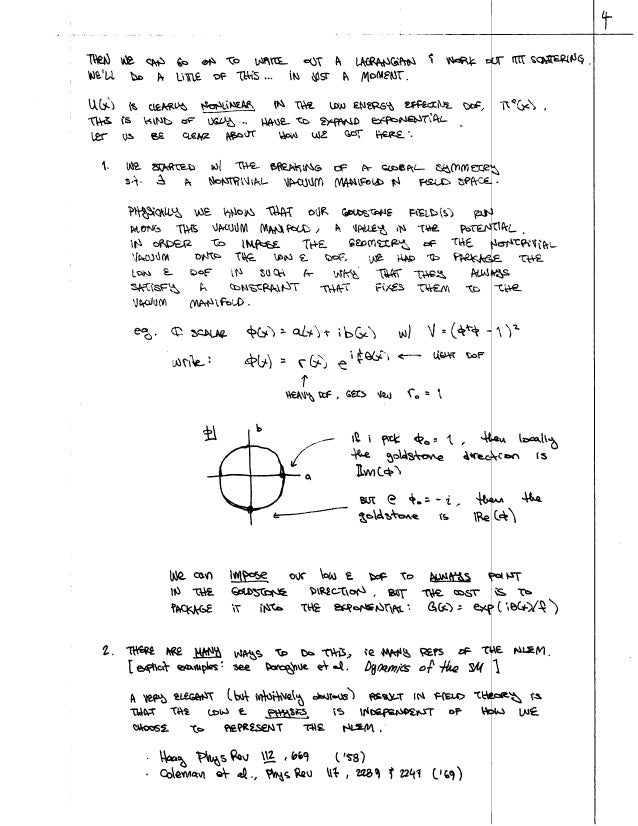 4
THEN WE CAN GO ON TO WRITE OUT A LAGRANGIAN & WORK OUT ππ SCATTERING.
WE'LL DO A LITTLE OF THIS... IN JUST A MOMENT.
U(x) IS CLEARLY NONLINEAR IN THE LOW ENERGY EFFECTIVE DOF, πᵃ(x),
THIS IS KIND OF UGLY... HAVE TO EXPAND EXPONENTIAL.
LET US BE CLEAR ABOUT HOW WE GOT HERE:
1. WE STARTED W/ THE BREAKING OF A GLOBAL SYMMETRY
s.t. ∃ A NONTRIVIAL VACUUM MANIFOLD IN FIELD SPACE.
PHYSICALLY WE KNOW THAT OUR GOLDSTONE FIELD(S) RUN
ALONG THIS VACUUM MANIFOLD, A VALLEY IN THE POTENTIAL.
IN ORDER TO IMPOSE THE GEOMETRY OF THE NONTRIVIAL
VACUUM ONTO THE LOW E DOF, WE HAD TO PACKAGE THE
LOW E DOF IN SUCH A WAY THAT THEY ALWAYS
SATISFY A CONSTRAINT THAT FIXES THEM TO THE
VACUUM MANIFOLD.
eg. ℂ SCALAR φ(x) = a(x) + i b(x) W/ V = (φ*φ - 1)²
write: φ(x) = r(x) e^{i/f θ(x)} ← LIGHT DOF
↑
HEAVY DOF, GETS VEV r₀ = 1
φ b
a
if i pick φ₀ = 1, then locally
the goldstone direction is
Im(φ)
BUT @ φ₀ = -i, then the
goldstone is Re(φ)
We can IMPOSE our low E DOF TO ALWAYS POINT
IN THE GOLDSTONE DIRECTION, BUT THE COST IS TO
PACKAGE IT INTO THE EXPONENTIAL: G(x) = exp(iθ(x)/f)
2. THERE ARE MANY WAYS TO DO THIS, ie MANY REPS OF THE NLΣM.
[explicit examples: see Donoghue et al. Dynamics of the SM]
A VERY ELEGANT (but intuitively obvious) RESULT IN FIELD THEORY IS
THAT THE LOW E PHYSICS IS INDEPENDENT OF HOW WE
CHOOSE TO REPRESENT THE NLΣM.
· Haag Phys Rev 112, 669 ('58)
· Coleman et al., Phys Rev 117, 2239 & 2247 ('69)